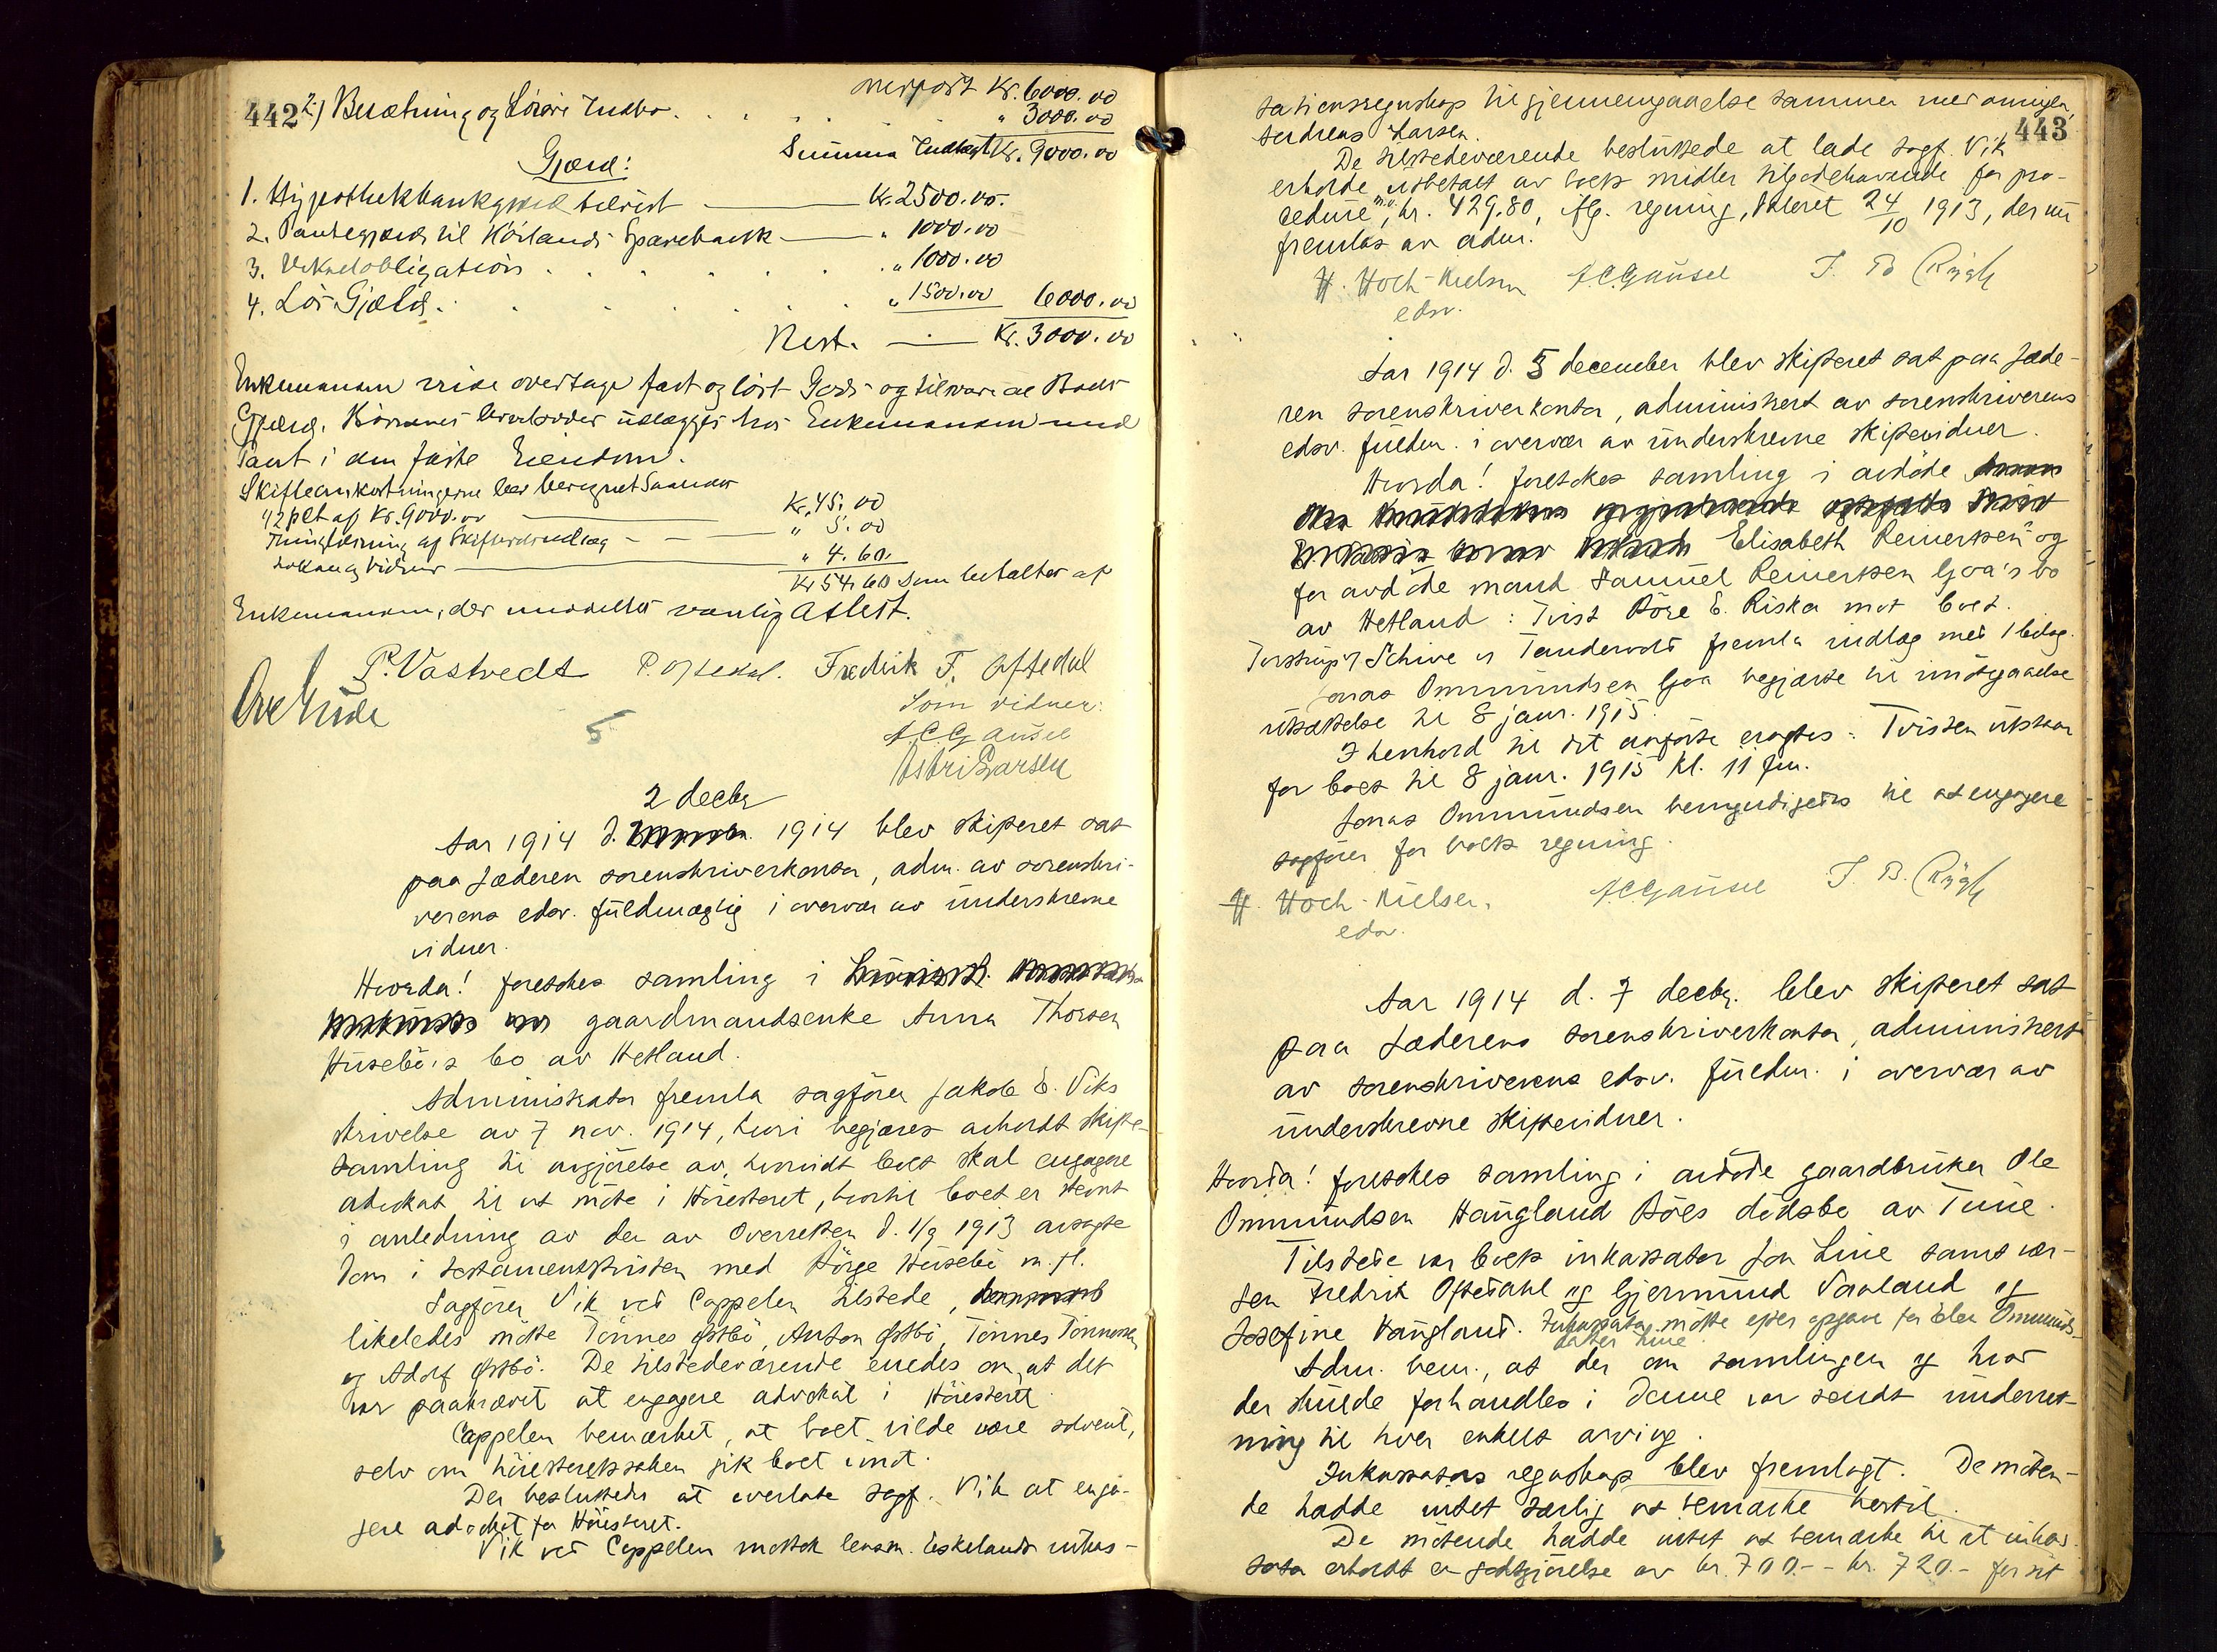 442
Kr. 6000.00
2) Besætning og Løsøre Indbo . . . . " 3000.00
Summa Indtægt Kr. 9000.00
Gjæld:
1. Hypothekbankgjæld tilrest — Kr. 2500.00.
2. Pantegjæld til Høilands Sparebank — " 1000.00
3. Vexelobligation . . . . . " 1000.00
4. Løs Gjæld. . . . . " 1500.00 6000.00
Rest. — Kr. 3000.00
Enkemanden vilde overtage fast og løst Gods og tilsvare al Boets
Gjæld. Børnenes Arvelodder udlægges hos Enkemanden med
Pant i den faste Eiendom.
Skifteomkostningerne blev beregnet Saaledes
½ pCt af Kr. 9000.00 — Kr. 45.00
Thinglæsning af Skifteudlæg — " 5.00
Lokale og Vidner — " 4.60.
Kr 54.60 som betaltes af
Enkemanden, der meddeltes vanlig Attest.
P. Vastvedt P. Oftedal. Fredrik F. Oftedal
Ove
Som vidner:
A.C. Gausel
Astri Larsen
2 decbr
Aar 1914 d. 1914 blev skifteret sat
paa Jæderen sorenskriverkontor, adm. av sorenskri-
verens edsv. fuldmægtig i overvær av underskrevne
vidner.
Hvorda! foretokes samling i
gaardmandsenke Anna Thorsen
Husebø's bo av Hetland.
Administrator fremla sagfører Jakob E. Viks
skrivelse av 7 nov. 1914, hvori begjæres avholdt skifte-
samling til avgjørelse av, hvorvidt boet skal engagere
advokat til at møte i Høiesteret, hvortil boet er stevnt
i anledning av den av Overretten d. 1/9 1913 avsagte
dom i testamentstvisten med Børge Husebø m. fl.
Sagfører Vik ved Cappelen tilstede,
likeledes møtte Tønnes Østbø, Anton Østbø, Tønnes Tønnesen
og Adolf Østbø. De tilstedeværende enedes om, at det
var paakrævet at engagere advokat i Høiesteret.
Cappelen bemærket, at boet vilde være solvent,
selv om høiesteretssaken gik boet imot.
Der besluttedes at overlate sagf. Vik at enga-
gere advokat for Høiesteret.
Vik ved Cappelen mottok lensm. Eskelands inkas-
443
sationsregnskap til gjennemgaaelse sammen med
Andreas Larsen.
De tilstedeværende besluttede at lade sagf. Vik
erholde utbetalt av boets midler tilgodehavende for pro-
cedure m.v., kr. 429.80, flg. regning, dateret 24/10 1913, der nu
fremlas av adm.
H. Hoch-Nielsen A.C. Gausel T. B. Rygh
edsv.
Aar 1914 d. 5 december blev skifteret sat paa Jæde-
ren sorenskriverkontor, administrert av sorenskriverens
edsv. fuldm. i overvær av underskrevne skiftevidner.
Hvorda! foretokes samling i avdøde
Elisabeth Reinertsen og
for avdøde mand Samuel Reinertsen Gjøa's bo
av Hetland: Tvist Børe E. Riska mot boet.
Torstrup & Schive v Tandervold fremla indlæg med 1 bilag.
Jonas Ommundsen Gjøa begjærte til imøtegaaelse
utsættelse til 8 janr. 1915.
I henhold til det anførte eragtes: Tvisten utstaar
for boet til 8 janr. 1915 kl. 11 fm.
Jonas Ommundsen bemyndigedes til at engagere
sagfører for boets regning.
H. Hoch-Nielsen. A.C. Gausel T. B. Rygh
edsv.
Aar 1914 d. 7 decbr. blev skifteret sat
paa Jæderens sorenskriverkontor, administrert
av sorenskriverens edsv. fuldm. i overvær av
underskrevne skiftevidner.
Hvorda! foretokes samling i avdøde gaardbruker Ole
Ommundsen Haugland Bøes dødsbo av Time.
Tilstede var boets inkassator Jon Line samt ver-
gen Fredrik Oftedahl og Gjermund Varland og
Josefine Haugland. Inkassator møtte efter opgave for Ommunds-
datter Line
Adm. bem., at der om samlingen og hvad
der skulde forhandles i denne var sendt underret-
ning til hver enkelt arving.
Inkassators regnskap blev fremlagt. De møten-
de hadde intet særlig at bemærke hertil.
De møtende hadde intet at bemærke til at inkas-
sator erholdt en godtgjørelse av kr. 700.- - kr. 720.- for sit